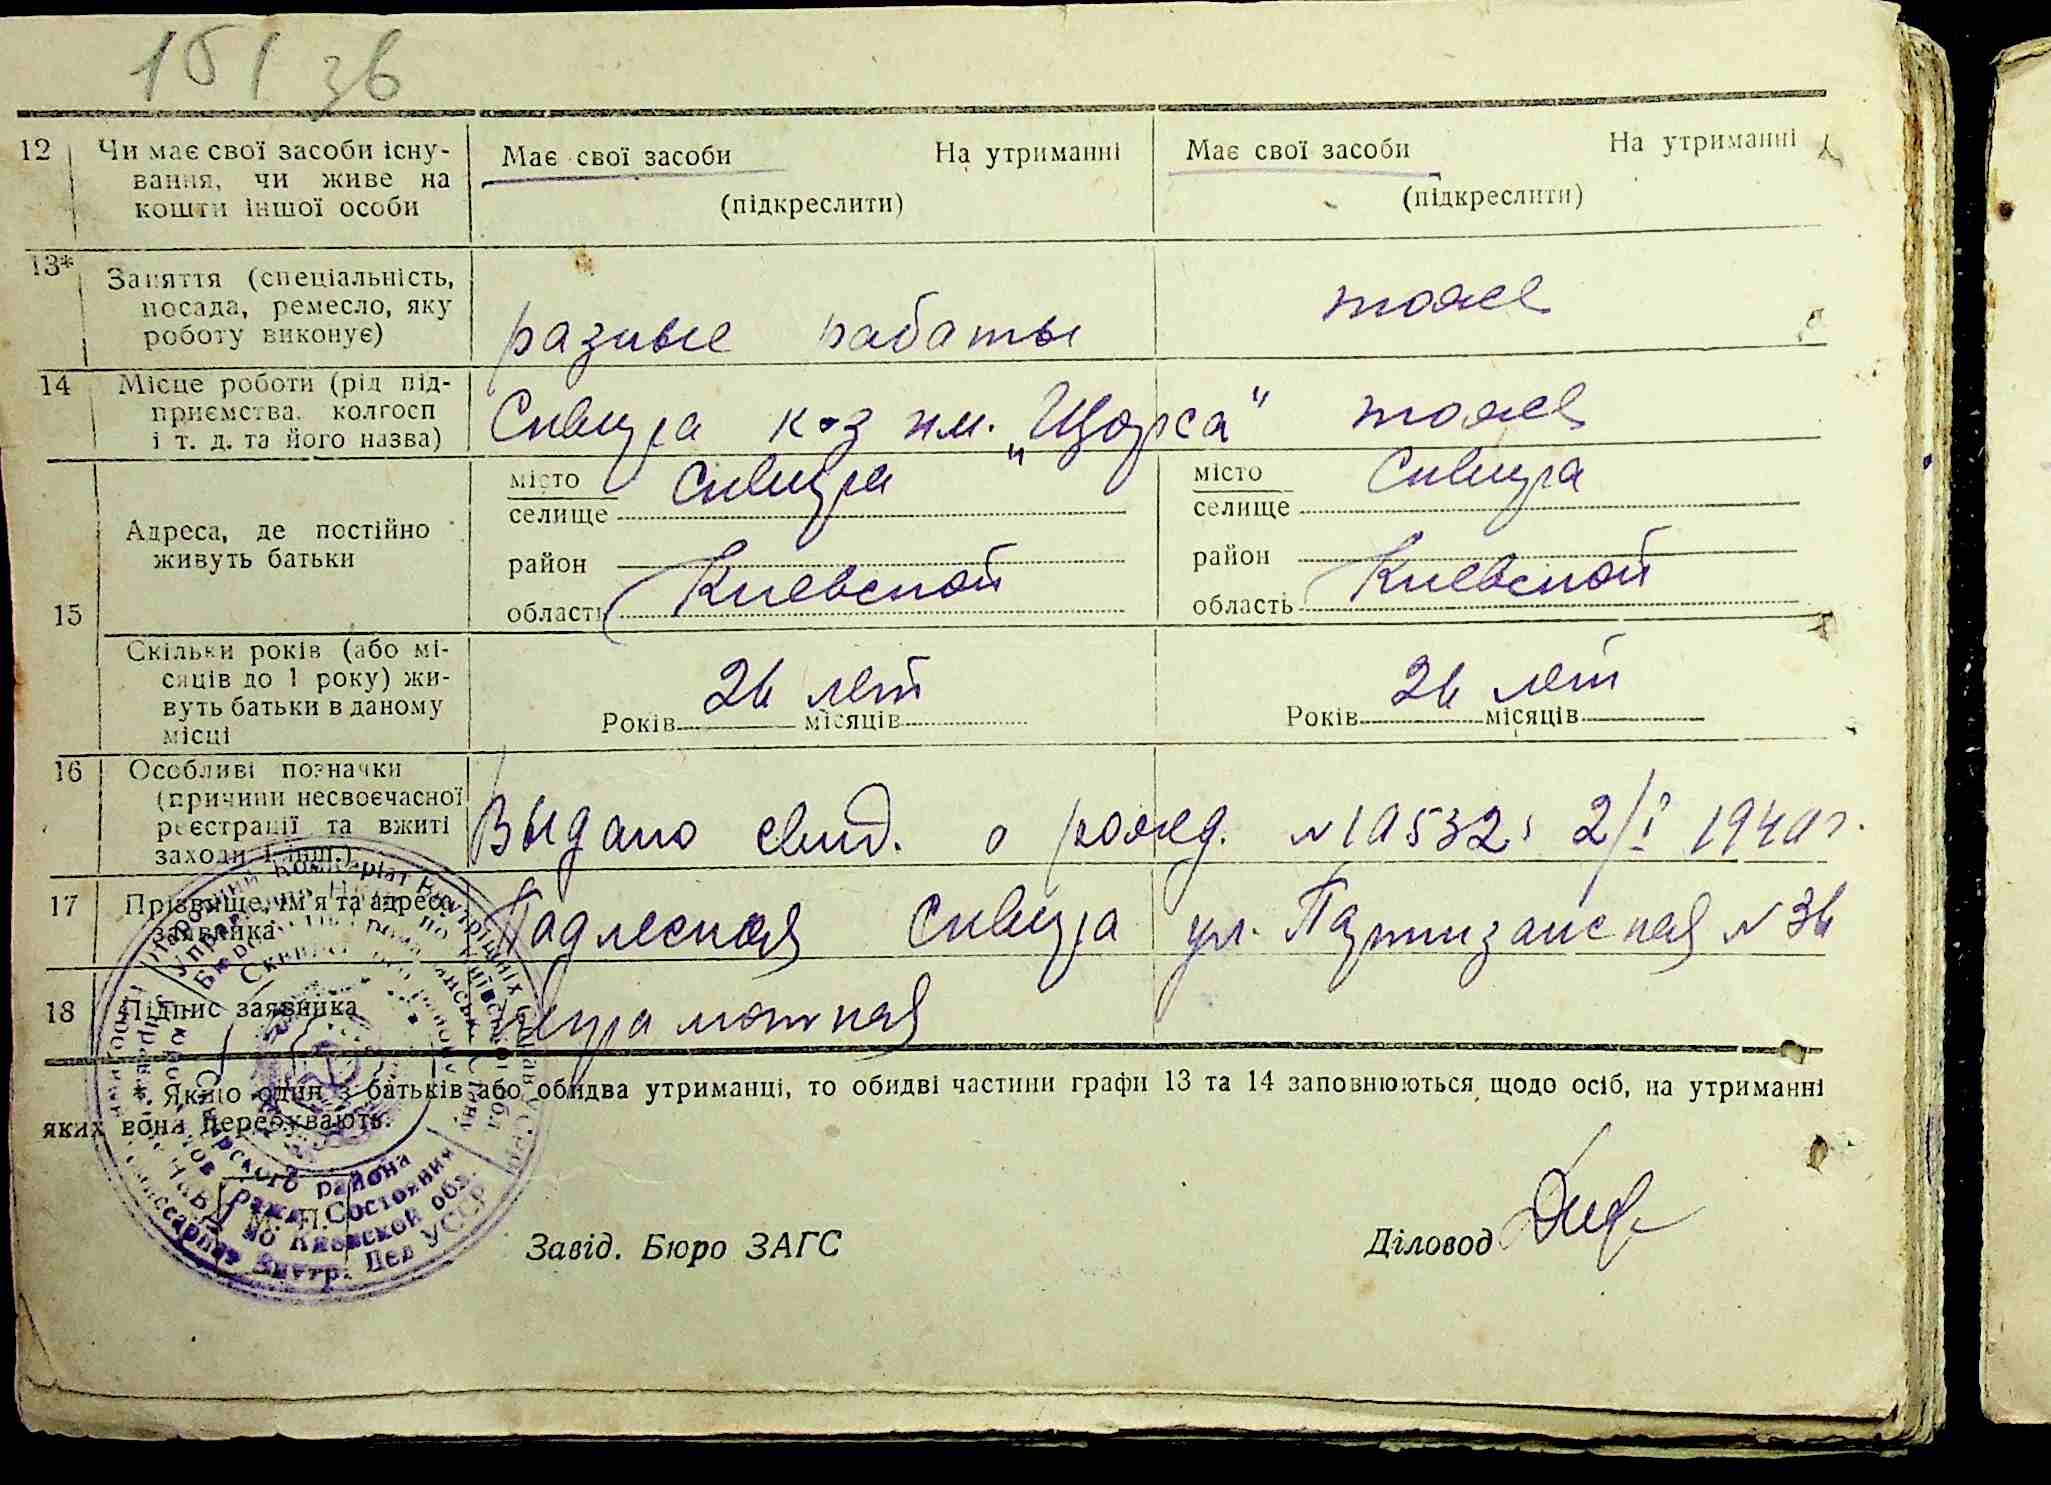 151 зв
12 Чи має свої засоби існу-
вання, чи живе на
кошти іншої особи
Має свої засоби На утриманні
(підкреслити)
Має свої засоби На утриманні
(підкреслити)
13* Заняття (спеціальність,
посада, ремесло, яку
роботу виконує)
разные работы
тоже
14 Місце роботи (рід під-
приємства, колгосп
і т. д. та його назва)
Сквира к-з им. „Щорса"
тоже
15 Адреса, де постійно
живуть батьки
місто Сквира
селище
район
область Киевской
місто Сквира
селище
район
область Киевской
Скільки років (або мі-
сяців до 1 року) жи-
вуть батьки в даному
місці
26 лет
Років місяців
26 лет
Років місяців
16 Особливі позначки
(причини несвоєчасної
реєстрації та вжиті
заходи і інш.)
Выдано свид. о рожд. №10532 2/I 1940 г.
17 Прізвище, ім'я та адреса
заявника
Подлесная Сквира ул. Партизанская №36
18 Підпис заявника
неграмотная
* Якщо один з батьків або обидва утриманці, то обидві частини графи 13 та 14 заповнюються щодо осіб, на утриманні
яких вони перебувають.
М. П.
Завід. Бюро ЗАГС
Діловод
района
Состояния
по Киевской обл.
Внутр. Дел УССР